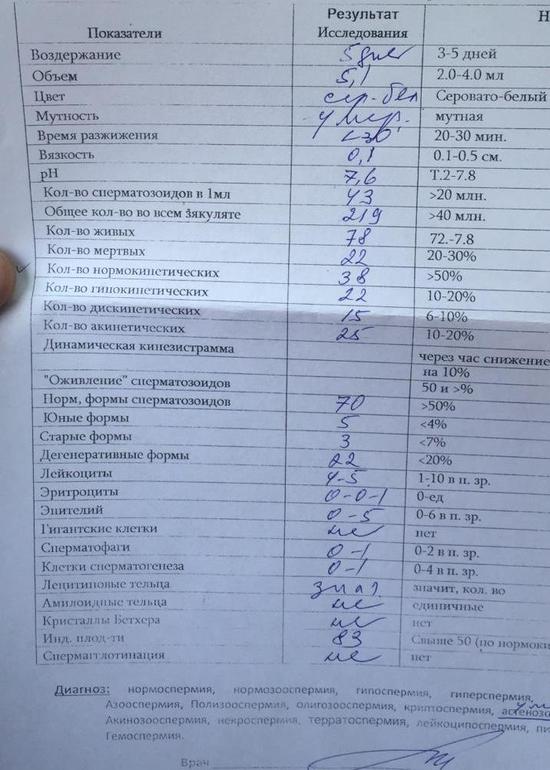 Показатели Результат Исследования Н
Воздержание 5 дней 3-5 дней
Объем 5,1 2.0-4.0 мл
Цвет сер.-бел Серовато-белый
Мутность умер. мутная
Время разжижения <30 20-30 мин.
Вязкость 0,1 0.1-0.5 см.
pH 7,6 Т.2-7.8
Кол-во сперматозоидов в 1мл 43 >20 млн.
Общее кол-во во всем Эякуляте 219 >40 млн.
Кол-во живых 78 72.-7.8
Кол-во мертвых 22 20-30%
Кол-во нормокинетических 38 >50%
Кол-во гипокинетических 22 10-20%
Кол-во дискинетических 15 6-10%
Кол-во акинетических 25 10-20%
Динамическая кинезистрамма через час снижение
на 10%
"Оживление" сперматозоидов 50 и >%
Норм, формы сперматозоидов 70 >50%
Юные формы 5 <4%
Старые формы 3 <7%
Дегенеративные формы 22 <20%
Лейкоциты 4-5 1-10 в п. зр.
Эритроциты 0-0-1 0-ед
Эпителий 0-5 0-6 в п. зр.
Гигантские клетки не нет
Сперматофаги 0-1 0-2 в п. зр.
Клетки сперматогенеза 0-1 0-4 в п. зр.
Лецитиновые тельца знач. значит, кол. во
Амилоидные тельца не единичные
Кристаллы Бетхера не нет
Инд. плод-ти 83 Свыше 50 (по нормоки
Спермагглотинация не нет
Диагноз: нормоспермия, нормозооспермия, гипоспермия, гиперспермия,
Азооспермия, Полизооспермия, олигозооспермия, криптоспермия, астенозо
Акинозооспермия, некроспермия, терратоспермия, лейкоципоспермия, пи
Гемоспермия.
Врач